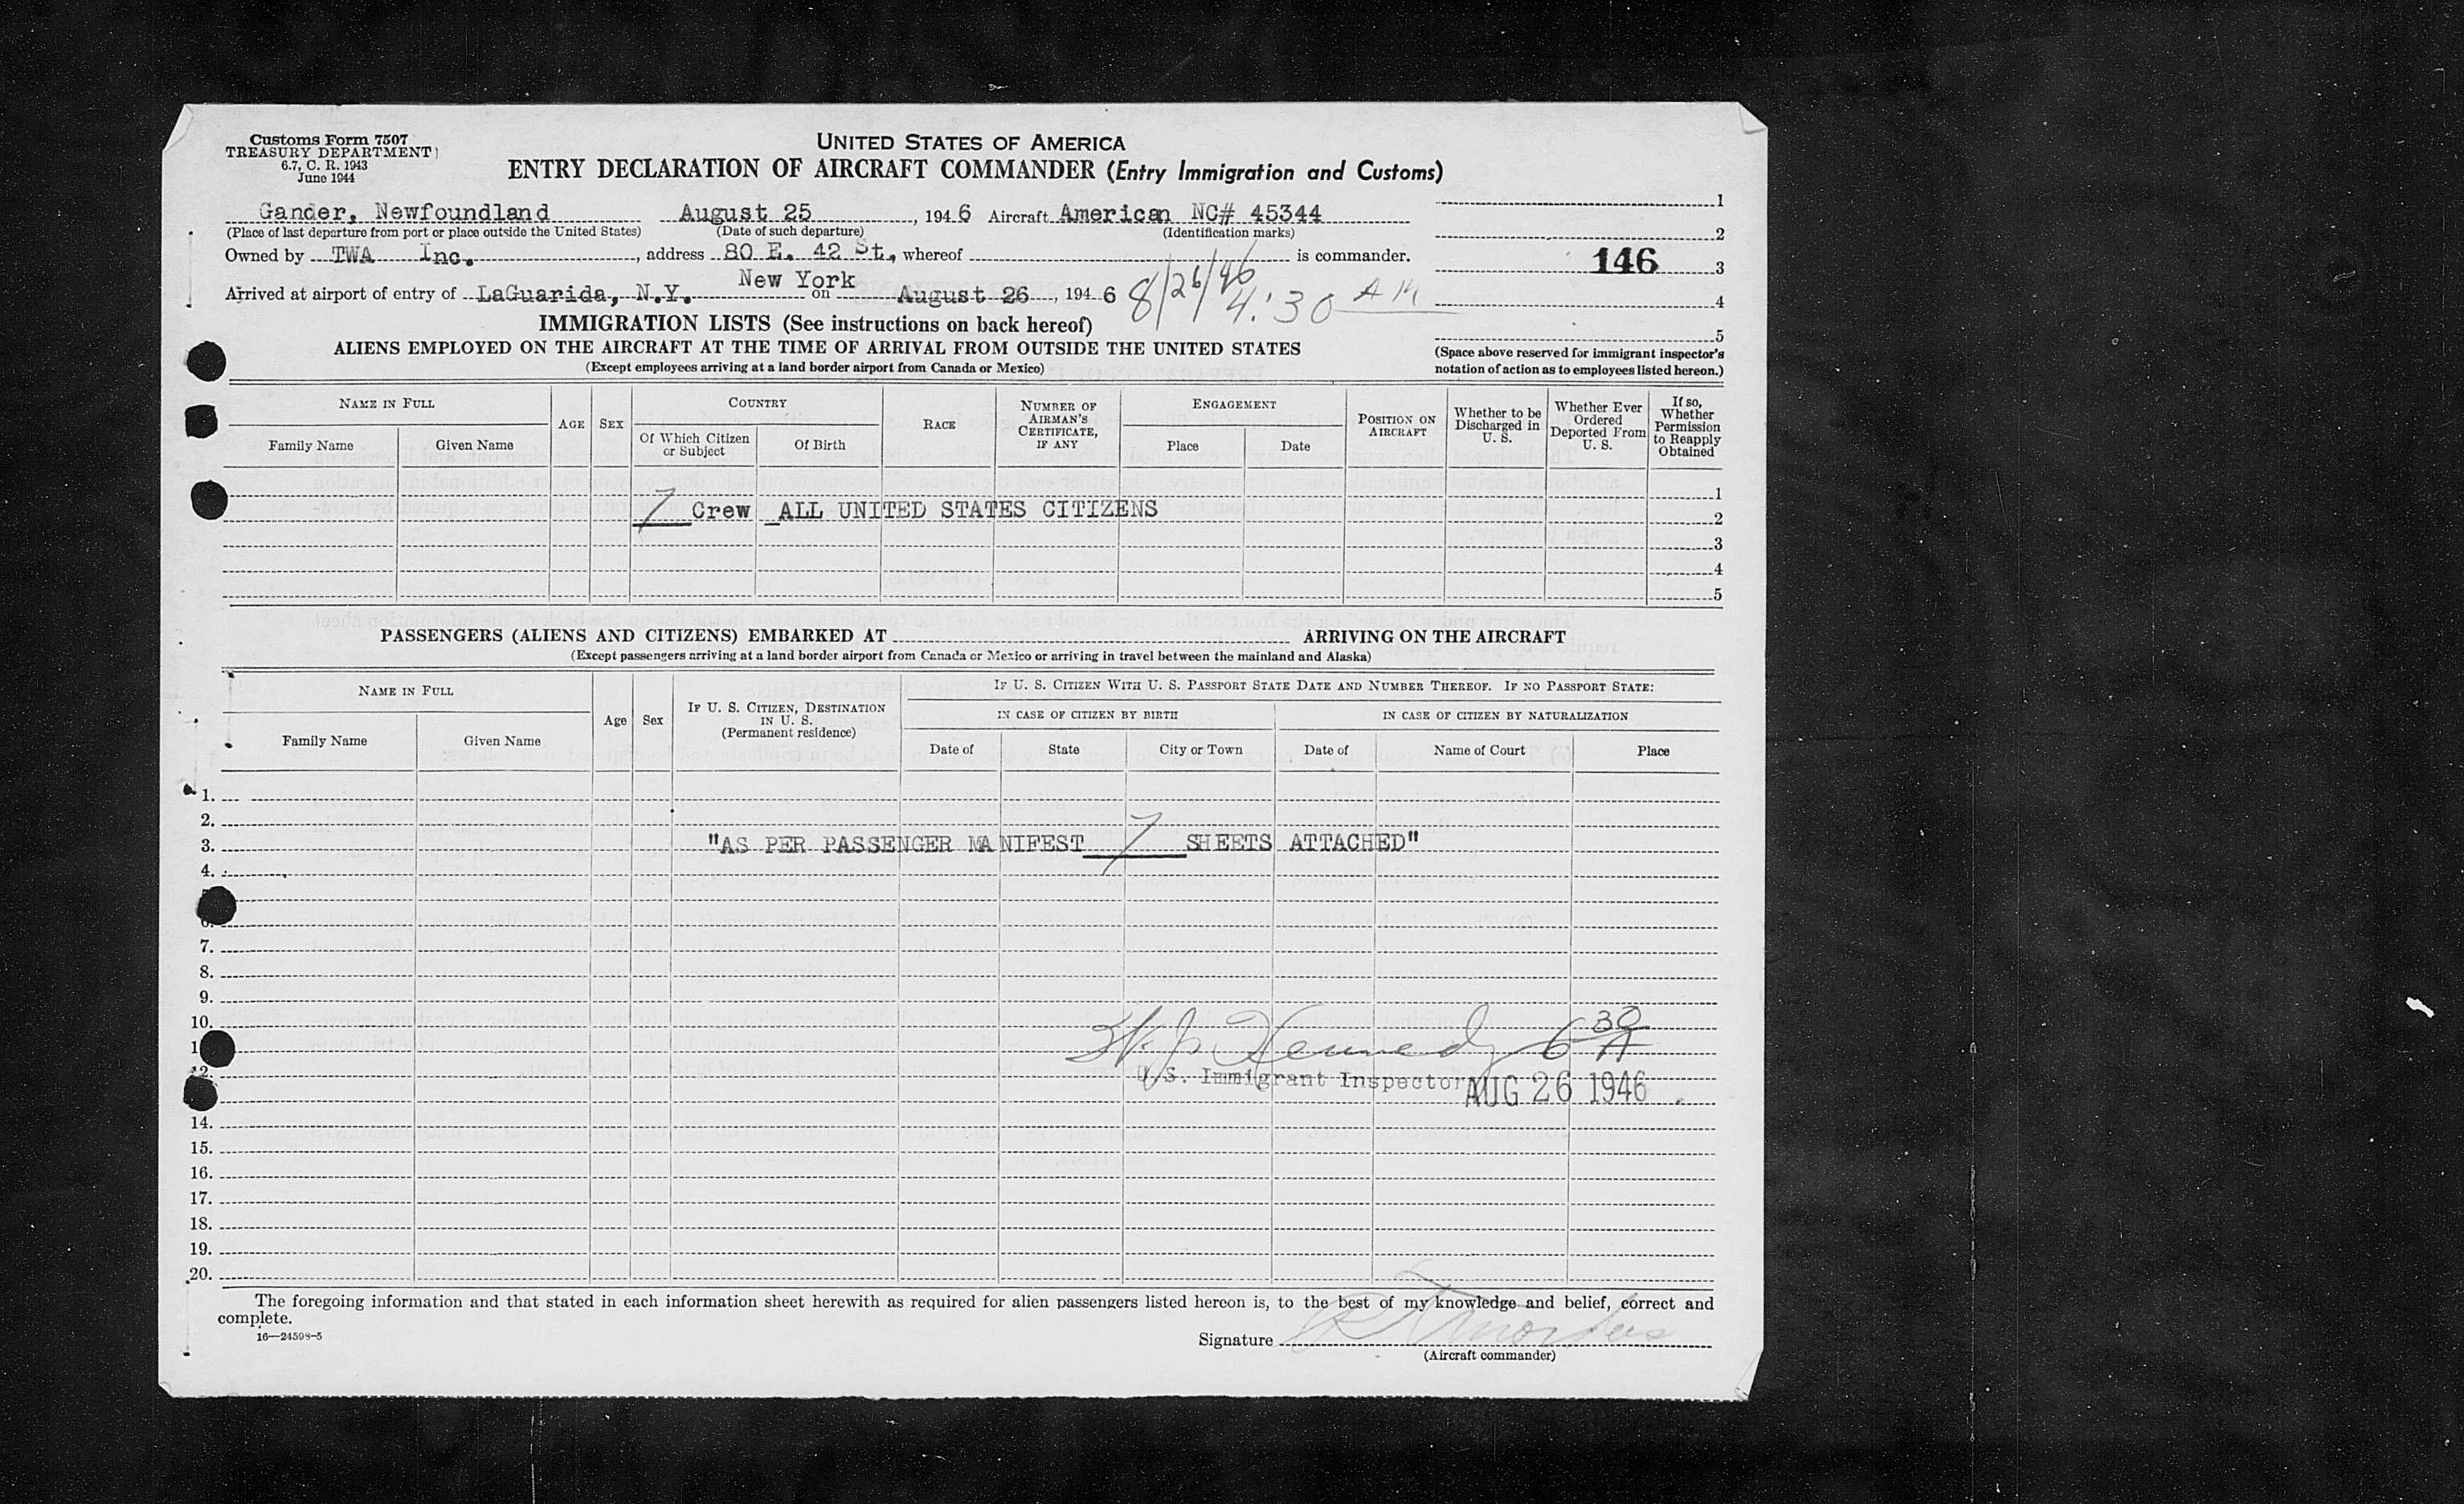 Customs Form 7507
TREASURY DEPARTMENT
6.7, C. R. 1943
June 1944
UNITED STATES OF AMERICA
ENTRY DECLARATION OF AIRCRAFT COMMANDER (Entry Immigration and Customs)
Gander, Newfoundland August 25, 1946 Aircraft American NC# 45344
(Place of last departure from port or place outside the United States) (Date of such departure) (Identification marks)
Owned by TWA Inc., address 80 E. 42 St., whereof is commander.
New York
Arrived at airport of entry of LaGuarida, N.Y. on August 26, 1946 8/26/46 4:30 AM
1
2
146 3
4
5
(Space above reserved for immigrant inspector's
notation of action as to employees listed hereon.)
IMMIGRATION LISTS (See instructions on back hereof)
ALIENS EMPLOYED ON THE AIRCRAFT AT THE TIME OF ARRIVAL FROM OUTSIDE THE UNITED STATES
(Except employees arriving at a land border airport from Canada or Mexico)
NAME IN FULL
Family Name
Given Name
AGE
SEX
COUNTRY
Of Which Citizen
or Subject
Of Birth
RACE
NUMBER OF
AIRMAN'S
CERTIFICATE,
IF ANY
ENGAGEMENT
Place
Date
POSITION ON
AIRCRAFT
Whether to be
Discharged in
U. S.
Whether Ever
Ordered
Deported From
U. S.
If so,
Whether
Permission
to Reapply
Obtained
1
7 Crew ALL UNITED STATES CITIZENS 2
3
4
5
PASSENGERS (ALIENS AND CITIZENS) EMBARKED AT ARRIVING ON THE AIRCRAFT
(Except passengers arriving at a land border airport from Canada or Mexico or arriving in travel between the mainland and Alaska)
NAME IN FULL
Family Name
Given Name
Age
Sex
IF U. S. CITIZEN, DESTINATION
IN U. S.
(Permanent residence)
IF U. S. CITIZEN WITH U. S. PASSPORT STATE DATE AND NUMBER THEREOF. IF NO PASSPORT STATE:
IN CASE OF CITIZEN BY BIRTH
IN CASE OF CITIZEN BY NATURALIZATION
Date of
State
City or Town
Date of
Name of Court
Place
1.
2.
3. "AS PER PASSENGER MANIFEST 7 SHEETS ATTACHED"
4.
7.
8.
9.
10.
Kennedy 6 30 A
12. U.S. Immigrant Inspector AUG 26 1946
14.
15.
16.
17.
18.
19.
20.
The foregoing information and that stated in each information sheet herewith as required for alien passengers listed hereon is, to the best of my knowledge and belief, correct and
complete.
16—24598-5
Signature
(Aircraft commander)